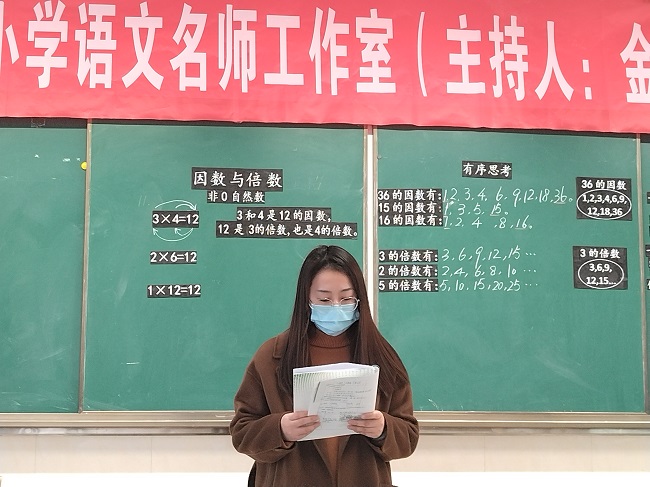 小学语文名师工作室（主持人：金
因数与倍数
非0自然数
3×4=12
3和4是12的因数，
12是3的倍数，也是4的倍数。
2×6=12
1×12=12
有序思考
36的因数有：1,2,3,4,6,9,12,18,36。
15的因数有：1,3,5,15。
16的因数有：1,2,4,8,16。
36的因数
1,2,3,4,6,9,
12,18,36
3的倍数有：3,6,9,12,15…
2的倍数有：2,4,6,8,10…
5的倍数有：5,10,15,20,25…
3的倍数
3,6,9,
12,15…